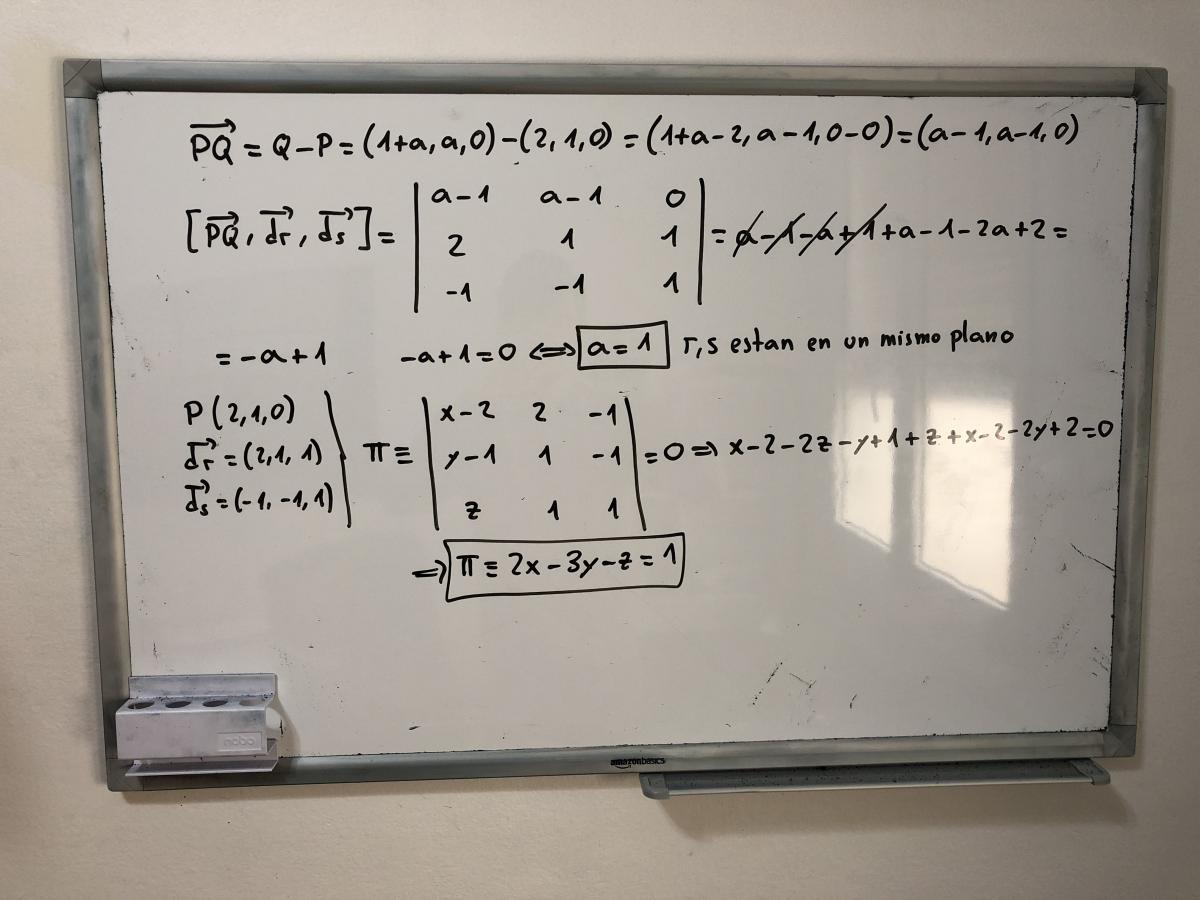 PQ⃗ = Q-P = (1+a, a, 0)-(2, 1, 0) = (1+a-2, a-1, 0-0) = (a-1, a-1, 0)
[PQ⃗, dr⃗, ds⃗] = | a-1 a-1 0 | = a-1-a+1+a-1-2a+2 =
| 2 1 1 |
| -1 -1 1 |
= -a+1 -a+1=0 ⟺ a=1 r,s estan en un mismo plano
P(2,1,0)
dr⃗ = (2,1,1)
ds⃗ = (-1,-1,1)
π ≡ | x-2 2 -1 | = 0 ⇒ x-2-2z-y+1+z+x-2-2y+2=0
| y-1 1 -1 |
| z 1 1 |
⇒ π ≡ 2x-3y-z=1
nobo
amazonbasics